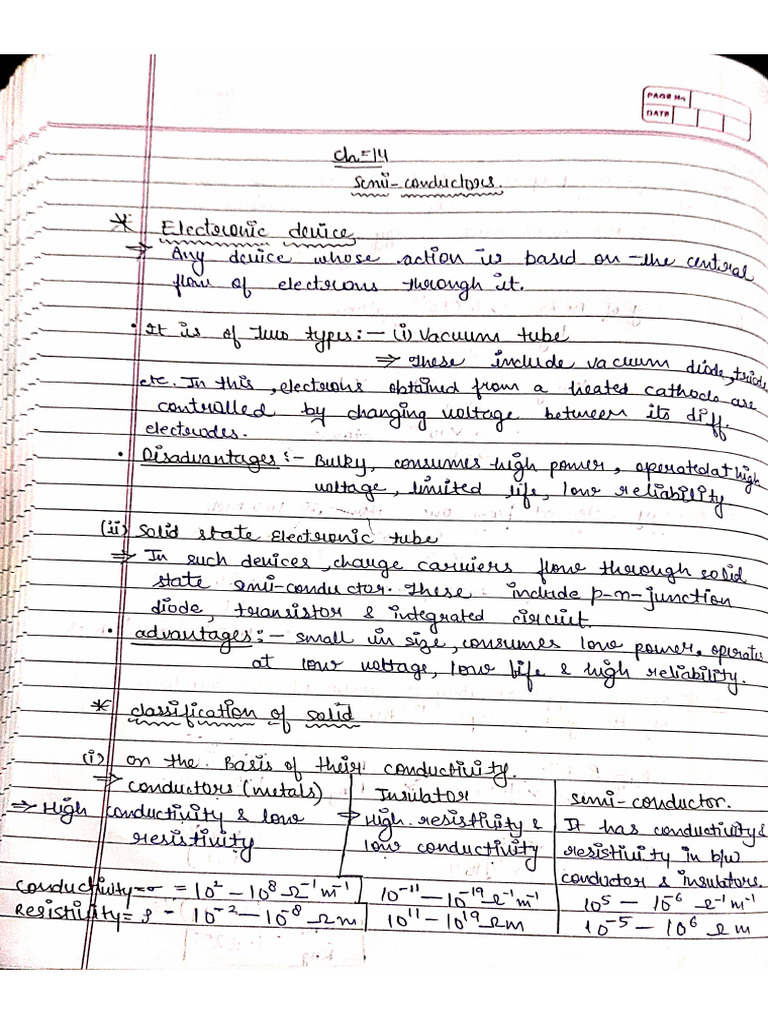 PAGE No.
DATE
Ch=14
Semi-conductors.
* Electronic device
⇒ Any device whose action is based on the central
flow of electrons through it.
• It is of two types:— (i) Vacuum tube
⇒ These include vacuum diode, triode
etc. In this, electrons obtained from a heated cathode are
controlled by changing voltage between its diff.
electrodes.
• Disadvantages:— Bulky, consumes high power, operated at high
voltage, limited life, low reliability
(ii) Solid state Electronic tube
⇒ In such devices, charge carriers flow through solid
state semi-conductor. These include p-n-junction
diode, transistor & integrated circuit.
• advantages:— small in size, consumes low power, operates
at low voltage, low life & high reliability.
* classification of solid
(i) on the Basis of their conductivity.
⇒ conductors (metals) Insulator semi-conductor.
⇒ High conductivity & low ⇒ High resistivity & It has conductivity &
resistivity low conductivity resistivity in b/w
conductor & insulators.
Conductivity = σ = 10² — 10⁸ Ω⁻¹m⁻¹ 10⁻¹¹ — 10⁻¹⁹ Ω⁻¹m⁻¹ 10⁵ — 10⁻⁶ Ω⁻¹m⁻¹
Resistivity = ρ = 10⁻² — 10⁻⁸ Ωm 10¹¹ — 10¹⁹ Ωm 10⁻⁵ — 10⁶ Ωm